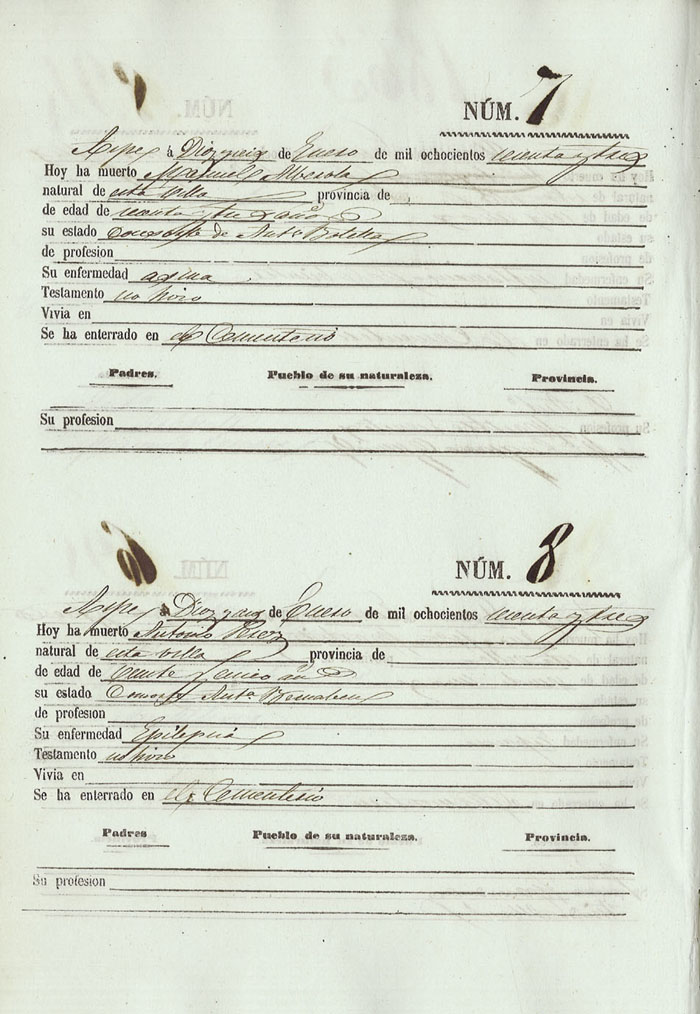 NÚM. 7
Aspe á Diez y seis de Enero de mil ochocientos sesenta y tres
Hoy ha muerto Manuel Alberola
natural de esta Villa provincia de
de edad de sesenta y tres años
su estado Consorte de Anta Botella
de profesion
Su enfermedad asma
Testamento no hizo
Vivia en
Se ha enterrado en el Cementerio
Padres. Pueblo de su naturaleza. Provincia.
Su profesion
NÚM. 8
Aspe á Diez y seis de Enero de mil ochocientos sesenta y tres
Hoy ha muerto Antonio Perez
natural de esta villa provincia de
de edad de
su estado Consorte Anta
de profesion
Su enfermedad Epilepsia
Testamento no hizo
Vivia en
Se ha enterrado en el Cementerio
Padres Pueblo de su naturaleza. Provincia.
Su profesion